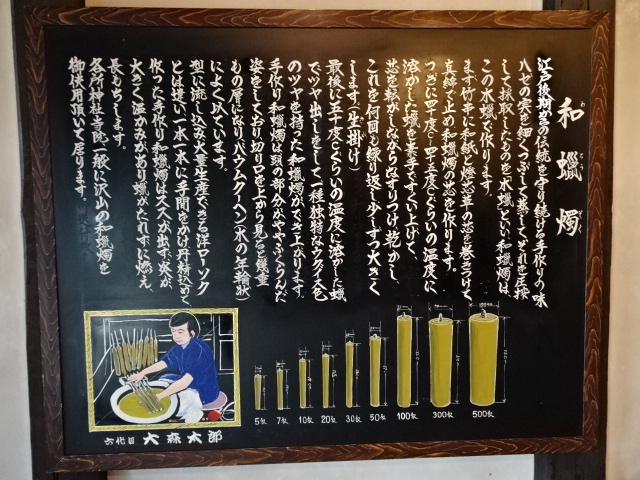 和蠟燭
わろうそく
江戸後期からの伝統を守り続ける手作りの味
ハゼの実を細くつぶして蒸してそれを圧搾
して採取したものを木蠟といい和蠟燭は、
この木蠟で作ります。
まず竹串に和紙と燈芯草の芯を巻きつけ、
真綿で止め和蠟燭の芯を作ります。
つぎに四十度C〜四十五度Cぐらいの温度に
溶かした蠟を素手ですくい上げて、
芯を転がしながらなすりつけ乾かし、
これを何回も繰り返し少しずつ大きく
します。(生掛け)
最後に五十度Cぐらいの温度に溶かした蠟
でツヤ出しをして一種独特なウグイス色
のツヤを持った和蠟燭ができ上がります。
手作り和蠟燭は頭の部分がややふくらんだ
姿をしており切り口を上から見ると幾重
もの層になりバウムクーヘン(木の年輪状)
によく似ています。
型に流し込み大量生産できる洋ローソク
とは違い一本一本に手間をかけ丹精込めて
作った手作り和蠟燭はススが出ず、炎が
大きく温かみがあり蠟がたれずに燃え、
長もちします。
各所神社寺院、一般に沢山の和蠟燭を
御使用頂いて居ります。
5匁
7匁
10匁
20匁
30匁
50匁
100匁
300匁
500匁
六代目 大森太郎